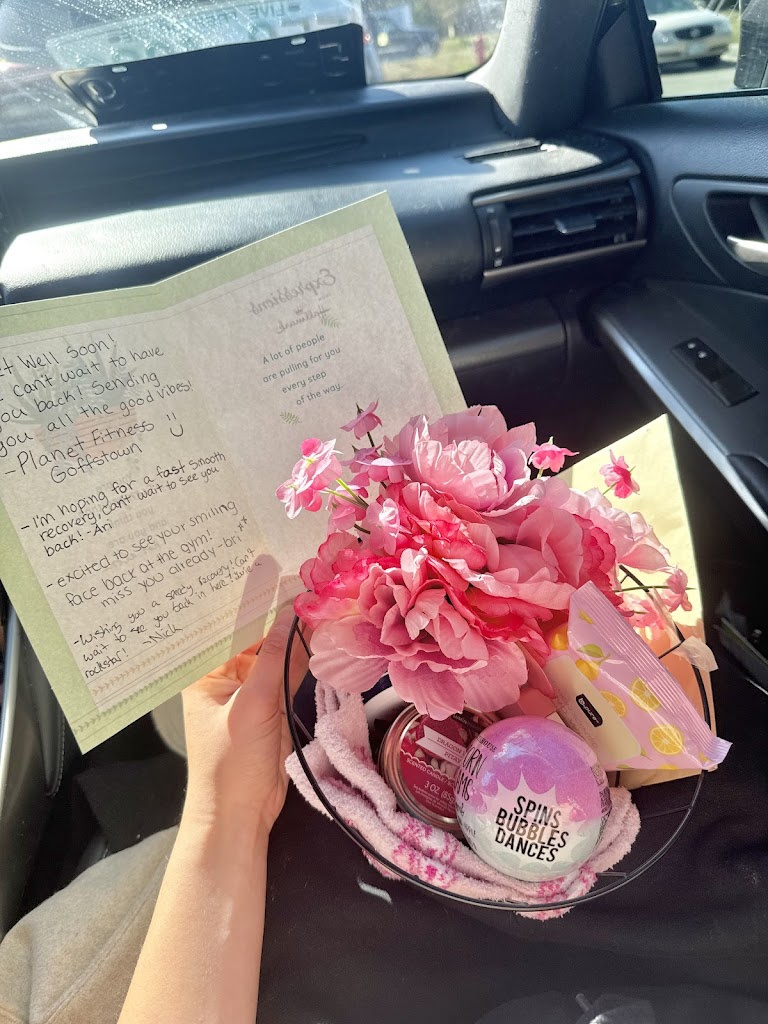 LIVE FREE
t Well Soon!
can't wait to have
you back! Sending
you all the good vibes!
-Planet Fitness :)
Goffstown
- I'm hoping for a fast smooth
recovery, can't wait to see you
back! - Ari
- excited to see your smiling
face back at the gym!
miss you already -bri**
-Wishing you a speedy recovery! Can't
wait to see you back in here!
rockstar! -Nick
Expressions
Hallmark
A lot of people
are pulling for you
every step
of the way.
DRAGON
SCENTED CANDLE
3 OZ
SPINS
BUBBLES
DANCES